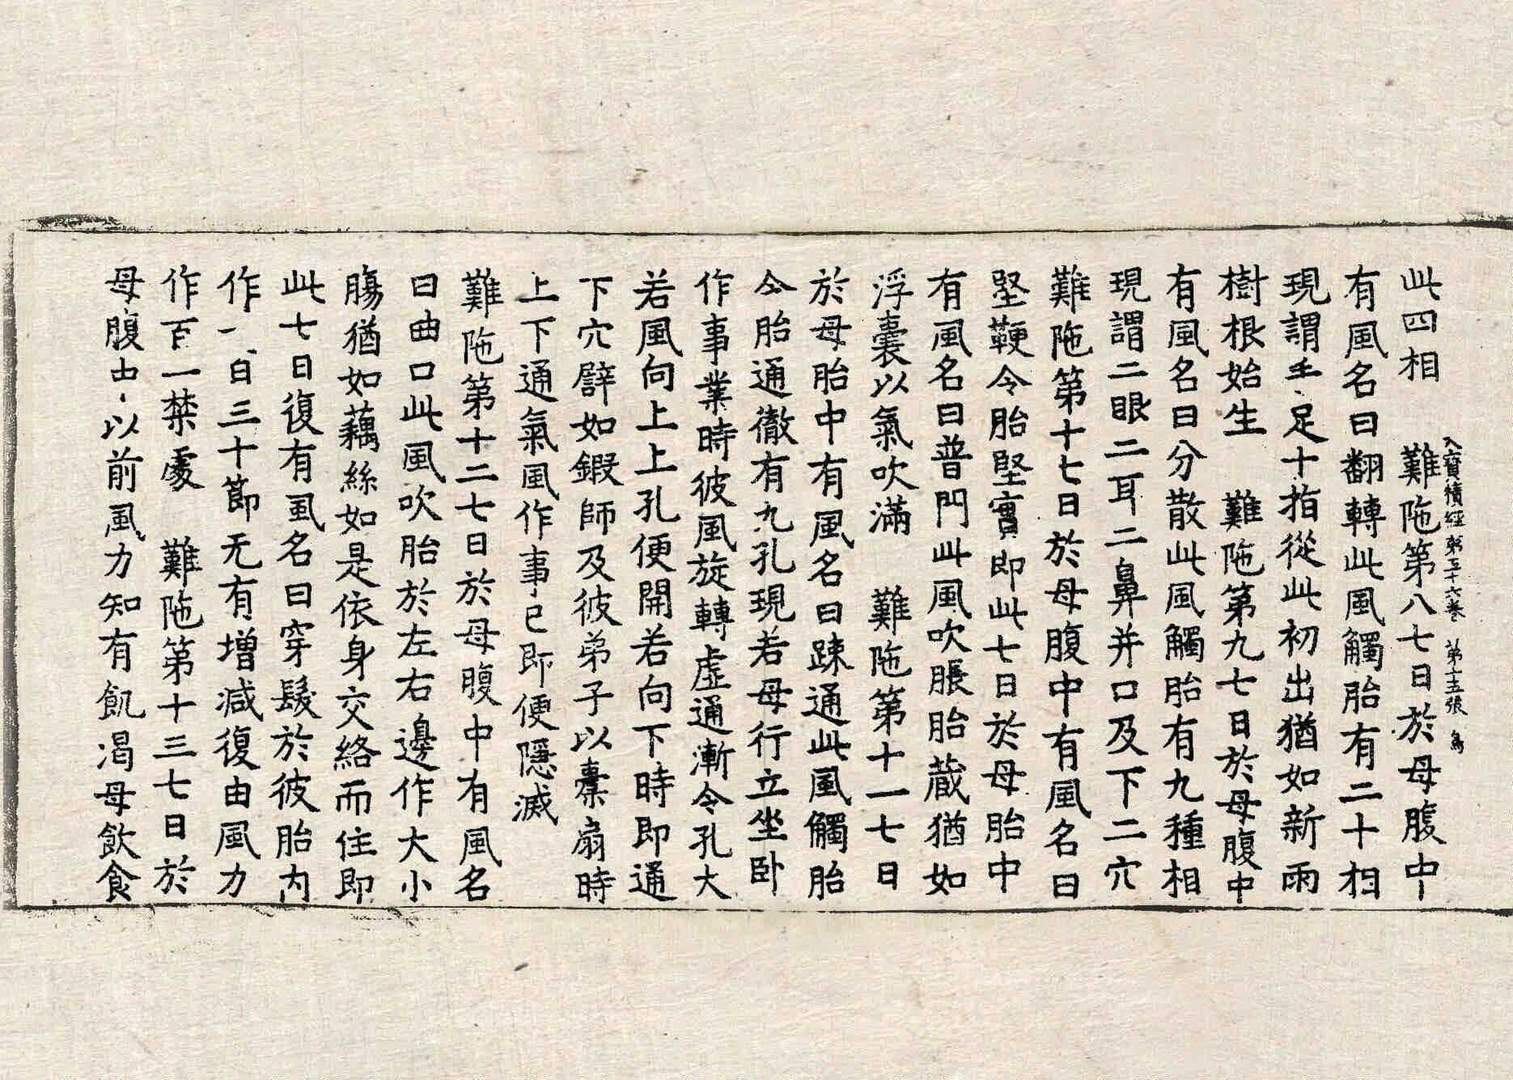 此四相　難陁第八七日於母腹中
入寶積經第五十六卷　第十五張　鳥
有風名曰翻轉此風觸胎有二十相
現謂手足十指從此初出猶如新雨
樹根始生　難陁第九七日於母腹中
有風名曰分散此風觸胎有九種相
現謂二眼二耳二鼻并口及下二穴
難陁第十七日於母腹中有風名曰
堅鞕令胎堅實即此七日於母胎中
有風名曰普門此風吹脹胎藏猶如
浮囊以氣吹滿　難陁第十一七日
於母胎中有風名曰踈通此風觸胎
令胎通徹有九孔現若母行立坐卧
作事業時彼風旋轉虛通漸令孔大
若風向上上孔便開若向下時即通
下穴譬如鍛師及彼弟子以橐扇時
上下通氣風作事已即便隱滅
難陁第十二七日於母腹中有風名
曰曲口此風吹胎於左右邊作大小
腸猶如藕絲如是依身交絡而住即
此七日復有風名曰穿髮於彼胎內
作一百三十節无有增減復由風力
作百一禁處　難陁第十三七日於
母腹中以前風力知有飢渴母飲食